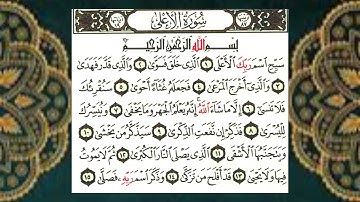 سُورَةُ الْأَعْلَى
بِسْمِ اللَّهِ الرَّحْمَٰنِ الرَّحِيمِ
سَبِّحِ اسْمَ رَبِّكَ الْأَعْلَى ١ الَّذِي خَلَقَ فَسَوَّىٰ ٢ وَالَّذِي قَدَّرَ فَهَدَىٰ
٣ وَالَّذِي أَخْرَجَ الْمَرْعَىٰ ٤ فَجَعَلَهُ غُثَاءً أَحْوَىٰ ٥ سَنُقْرِئُكَ
فَلَا تَنْسَىٰ ٦ إِلَّا مَا شَاءَ اللَّهُ إِنَّهُ يَعْلَمُ الْجَهْرَ وَمَا يَخْفَىٰ ٧ وَنُيَسِّرُكَ
لِلْيُسْرَىٰ ٨ فَذَكِّرْ إِنْ نَفَعَتِ الذِّكْرَىٰ ٩ سَيَذَّكَّرُ مَنْ يَخْشَىٰ ١٠
وَيَتَجَنَّبُهَا الْأَشْقَى ١١ الَّذِي يَصْلَى النَّارَ الْكُبْرَىٰ ١٢ ثُمَّ لَا يَمُوتُ
فِيهَا وَلَا يَحْيَىٰ ١٣ قَدْ أَفْلَحَ مَنْ تَزَكَّىٰ ١٤ وَذَكَرَ اسْمَ رَبِّهِ فَصَلَّىٰ ١٥